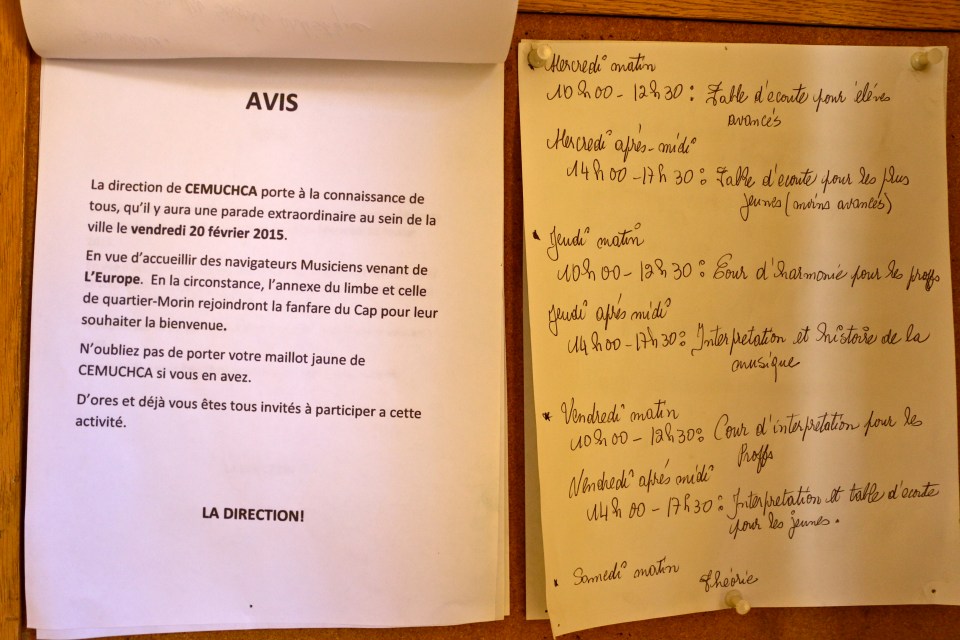 AVIS
La direction de CEMUCHCA porte à la connaissance de
tous, qu'il y aura une parade extraordinaire au sein de la
ville le vendredi 20 février 2015.
En vue d'accueillir des navigateurs Musiciens venant de
L'Europe. En la circonstance, l'annexe du limbe et celle
de quartier-Morin rejoindront la fanfare du Cap pour leur
souhaiter la bienvenue.
N'oubliez pas de porter votre maillot jaune de
CEMUCHCA si vous en avez.
D'ores et déjà vous êtes tous invités à participer a cette
activité.
LA DIRECTION!
Mercredi matin
10h00 - 12h30 : Table d'ecoute pour éléves
avancés
Mercredi aprés-midi
14h00 - 17h30 : Table d'ecoute pour les plus
jeunes (moins avancés)
Jeudi matin
10h00 - 12h30 : Cour d'harmonie pour les proffs
Jeudi aprés midi
14h00 - 17h30 : Interpretation et histoire de la
musique
* Vendredi matin
10h00 - 12h30 : Cour d'interpretation pour les
Proffs
Vendredi aprés midi
14h00 - 17h30 : Interpretation et table d'ecoute
pour les jeunes.
Samedi matin
théorie